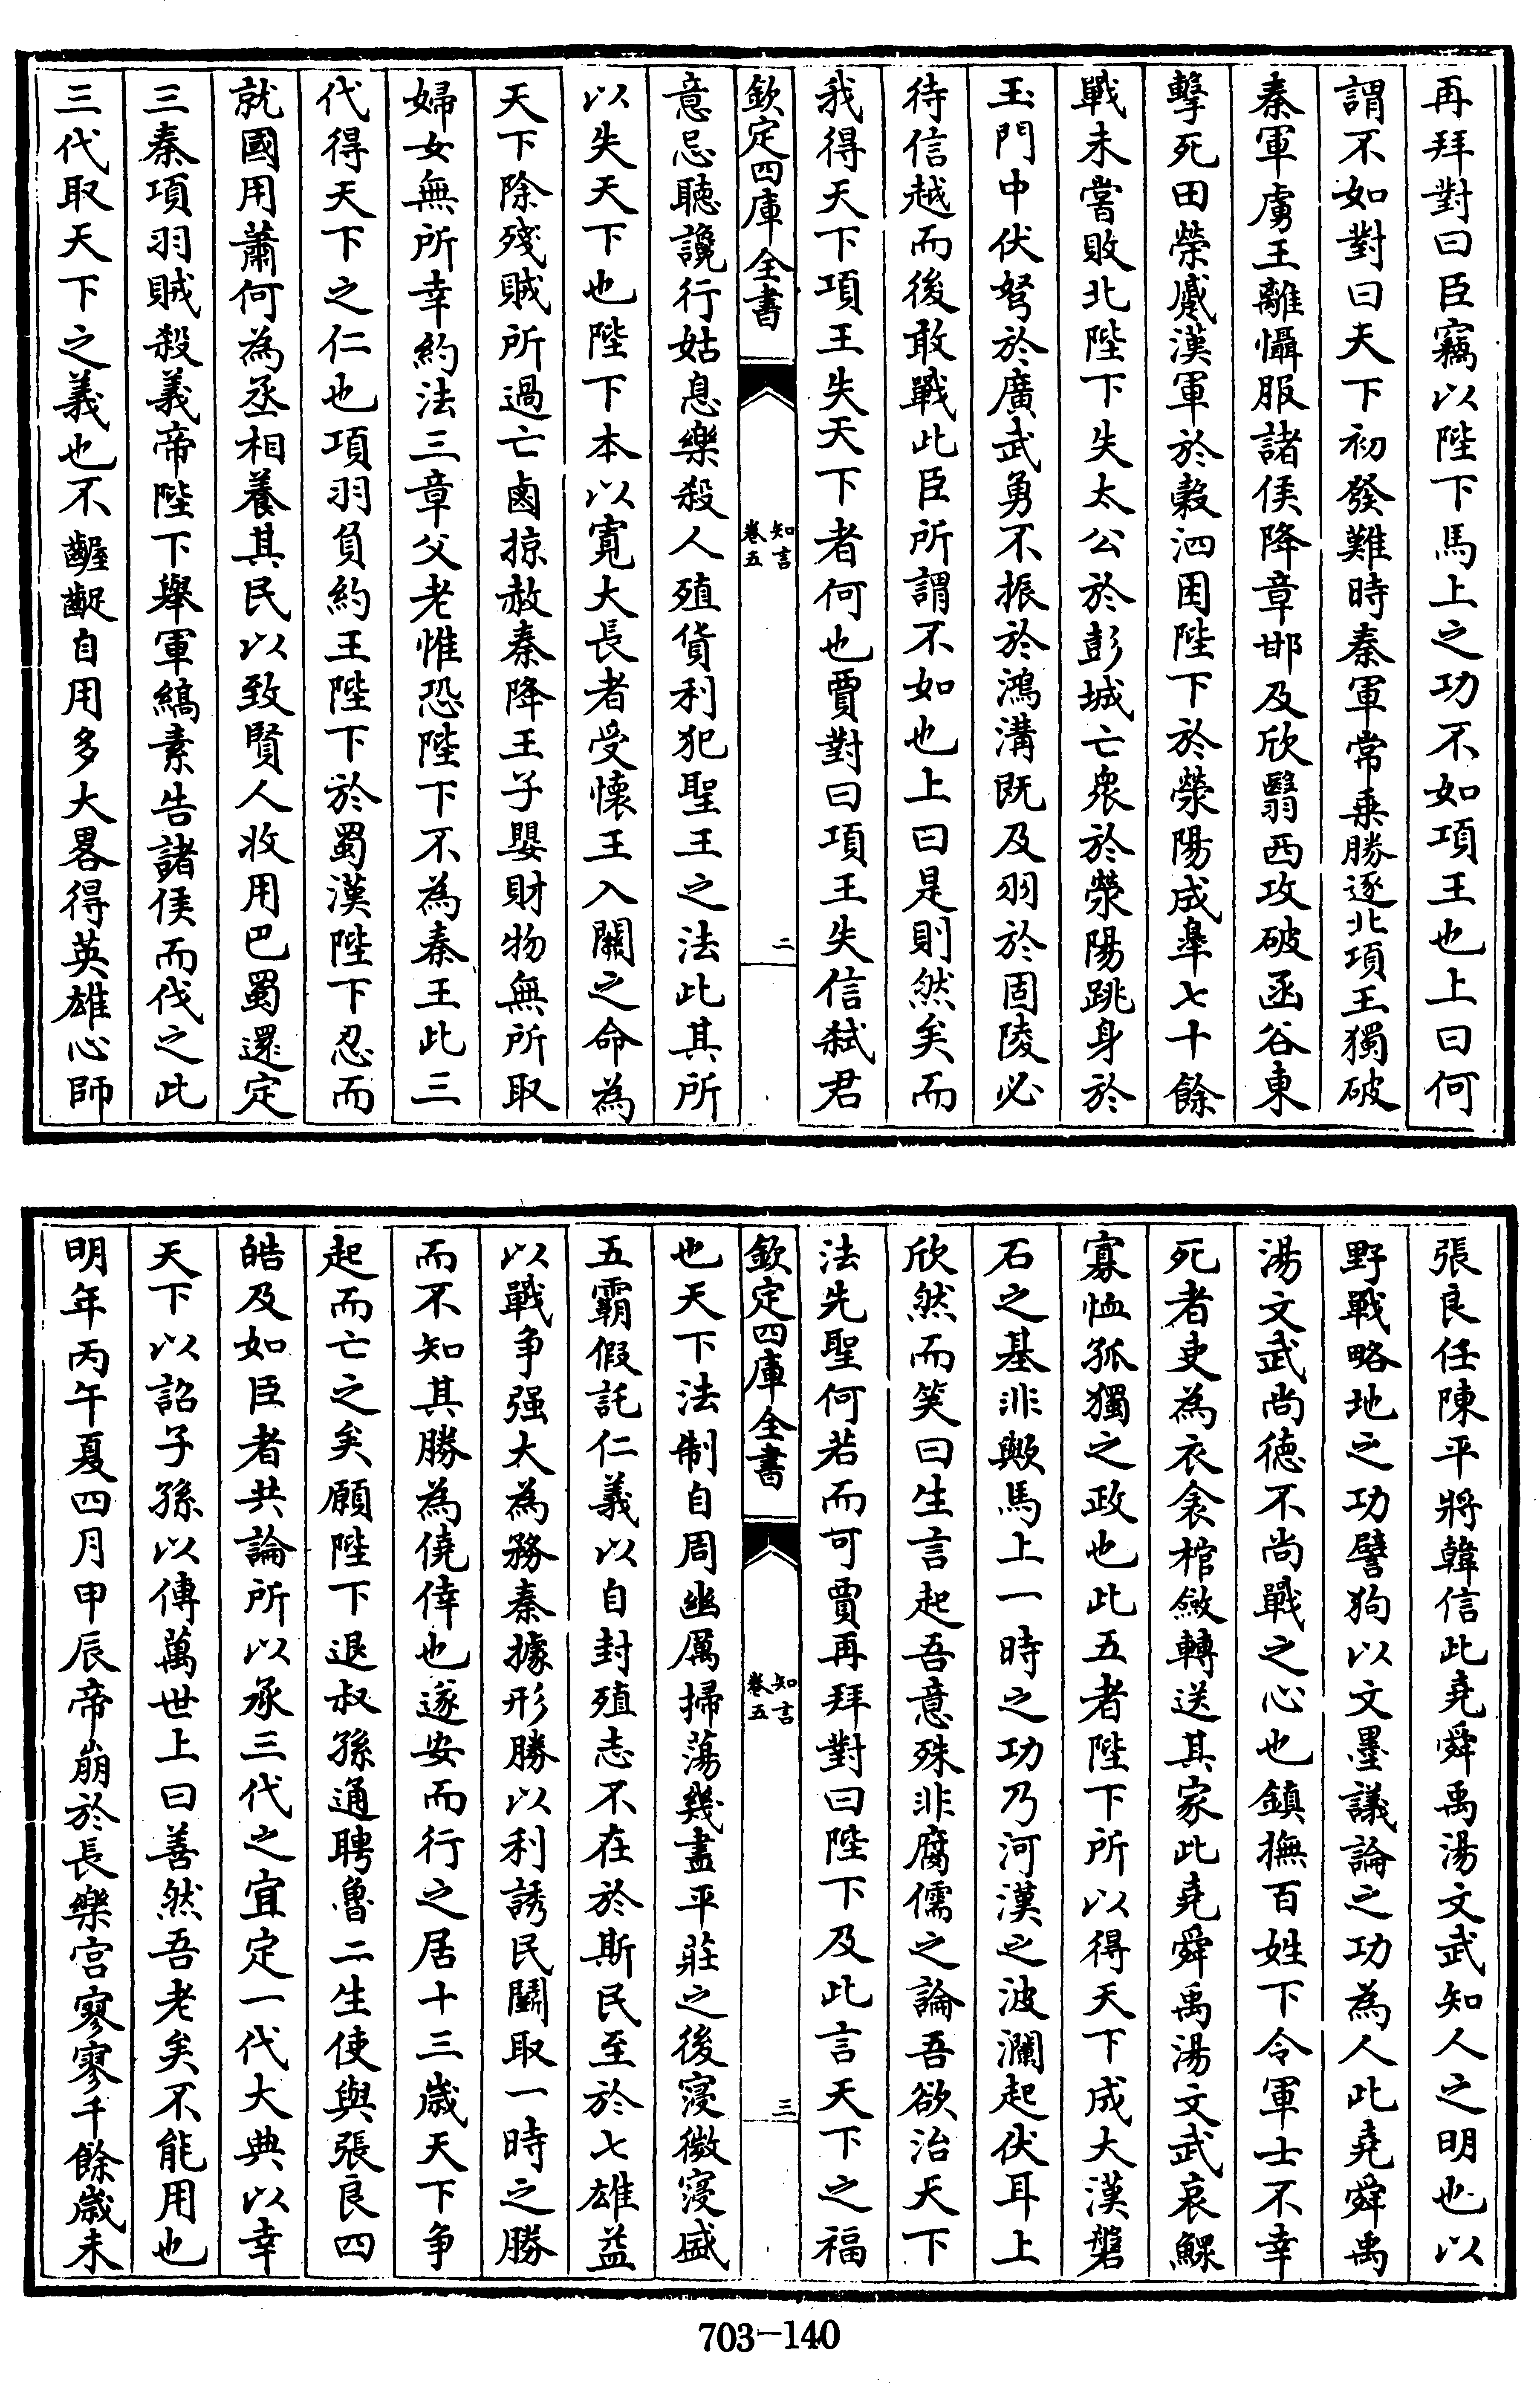 再拜對曰臣竊以陛下馬上之功不如項王也上曰何
謂不如對曰天下初發難時秦軍常乗勝逐北項王獨破
秦軍虜王離慴服諸侯降章邯及欣翳西攻破函谷東
擊死田榮蹙漢軍於榖泗困陛下於滎陽成臯七十餘
戰未嘗敗北陛下失太公於彭城亡衆於滎陽跳身於
玉門中伏弩於廣武勇不振於鴻溝既及羽於固陵必
待信越而後敢戰此臣所謂不如也上曰是則然矣而
我得天下項王失天下者何也賈對曰項王失信弑君
欽定四庫全書
知言
卷五
二
意忌聽讒行姑息樂殺人殖貨利犯聖王之法此其所
以失天下也陛下本以寛大長者受懐王入關之命為
天下除殘賊所過亡鹵掠赦秦降王子嬰財物無所取
婦女無所幸約法三章父老惟恐陛下不為秦王此三
代得天下之仁也項羽負約王陛下於蜀漢陛下忍而
就國用蕭何為丞相養其民以致賢人收用巴蜀還定
三秦項羽賊殺義帝陛下舉軍縞素告諸侯而伐之此
三代取天下之義也不齷齪自用多大畧得英雄心師
張良任陳平將韓信此堯舜禹湯文武知人之明也以
野戰略地之功譬狗以文墨議論之功為人此堯舜禹
湯文武尚徳不尚戰之心也鎮撫百姓下令軍士不幸
死者吏為衣衾棺斂轉送其家此堯舜禹湯文武哀鰥
寡恤孤獨之政也此五者陛下所以得天下成大漢磐
石之基非歟馬上一時之功乃河漢之波瀾起伏耳上
欣然而笑曰生言起吾意殊非腐儒之論吾欲治天下
法先聖何若而可賈再拜對曰陛下及此言天下之福
欽定四庫全書
知言
卷五
三
也天下法制自周幽厲掃蕩幾盡平莊之後寖微寖滅
五霸假託仁義以自封殖志不在於斯民至於七雄益
以戰争强大為務秦據形勝以利誘民鬭取一時之勝
而不知其勝為僥倖也遂安而行之居十三歳天下争
起而亡之矣願陛下退叔孫通聘魯二生使與張良四
皓及如臣者共論所以承三代之宜定一代大典以幸
天下以詔子孫以傳萬世上曰善然吾老矣不能用也
明年丙午夏四月甲辰帝崩於長樂宫寥寥千餘歳未
703-140